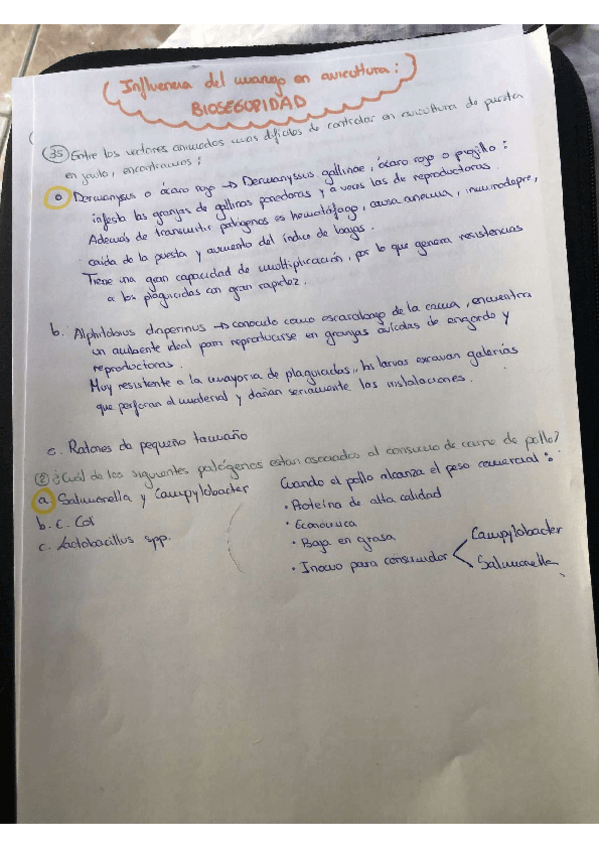 Influencia del manejo en avicultura:
BIOSEGURIDAD
35 Entre los vectores animados mas dificiles de controlar en avicultura de puesta
en jaula, encontramos:
a Dermanysus o ácaro rojo → Dermanyssus gallinae, ácaro rojo o piojillo:
infesta las granjas de gallinas ponedoras y a veces las de reproductoras.
Además de transmitir patógenos es hematófago, causa anemia, inmunodepre,
caida de la puesta y aumento del índice de bajas.
Tiene una gran capacidad de multiplicación, por lo que genera resistencias
a los plaguicidas con gran rapidez.
b. Alphitobius diaperinus → conocido como escarabajo de la cama, encuentra
un ambiente ideal para reproducirse en granjas avícolas de engorde y
reproductoras.
Muy resistente a la mayoria de plaguicidas, las larvas excavan galerías
que perforan el material y dañan seriamente las instalaciones.
c. Ratones de pequeño tamaño
② ¿Cuál de los siguientes patógenos estan asociados al consumo de carne de pollo?
a. Salmonella y Campylobacter
b. E. Coli
c. Lactobacillus spp.
Cuando el pollo alcanza el peso comercial:
• Proteína de alta calidad
• Económica
• Baja en grasa
• Inocuo para consumidor < Campylobacter
Salmonella